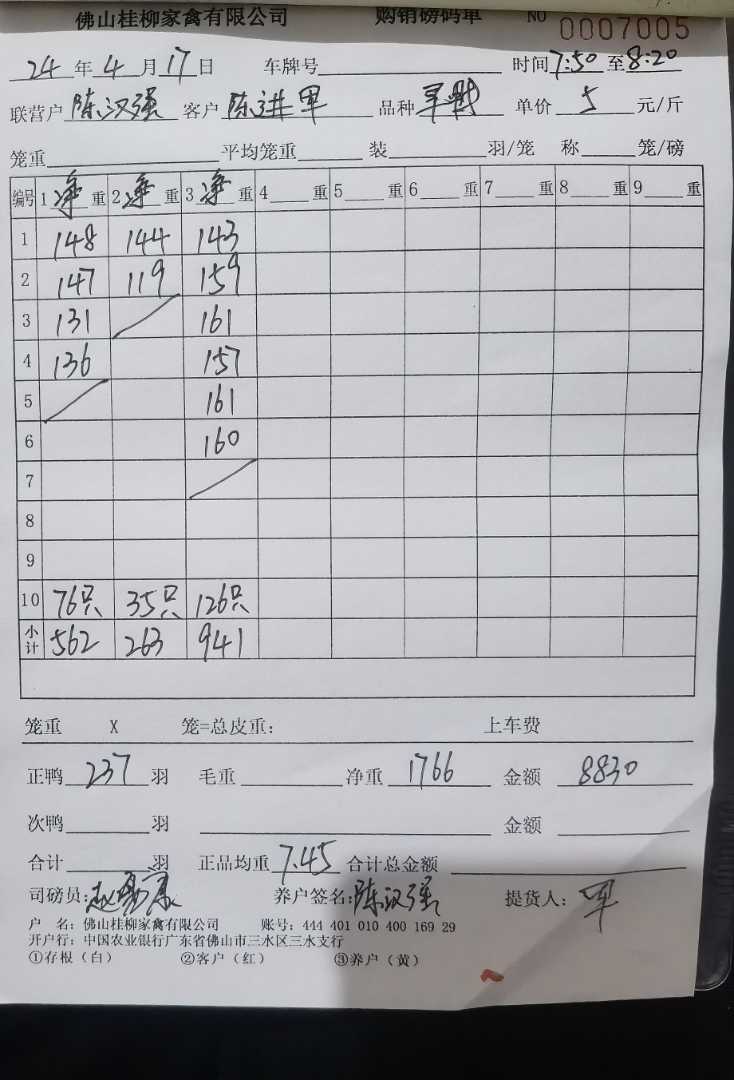 佛山桂柳家禽有限公司 购销磅码单 NO 0007005
24年4月17日 车牌号 时间7:50至8:20
联营户 陈汉强 客户 陈进军 品种 单价 5 元/斤
笼重 平均笼重 装 羽/笼 称 笼/磅
编号 1净重 2净重 3净重 4 重 5 重 6 重 7 重 8 重 9 重
1 148 144 143
2 147 119 159
3 131 161
4 136 157
5 161
6 160
7
8
9
10 76只 35只 126只
小计 562 263 941
笼重 X 笼=总皮重: 上车费
正鸭 237 羽 毛重 净重 1766 金额 8830
次鸭 羽 金额
合计 羽 正品均重 7.45 合计总金额
司磅员: 养户签名: 陈汉强 提货人: 军
户 名: 佛山桂柳家禽有限公司 账号: 444 401 010 400 169 29
开户行: 中国农业银行广东省佛山市三水区三水支行
①存根(白) ②客户(红) ③养户(黄)